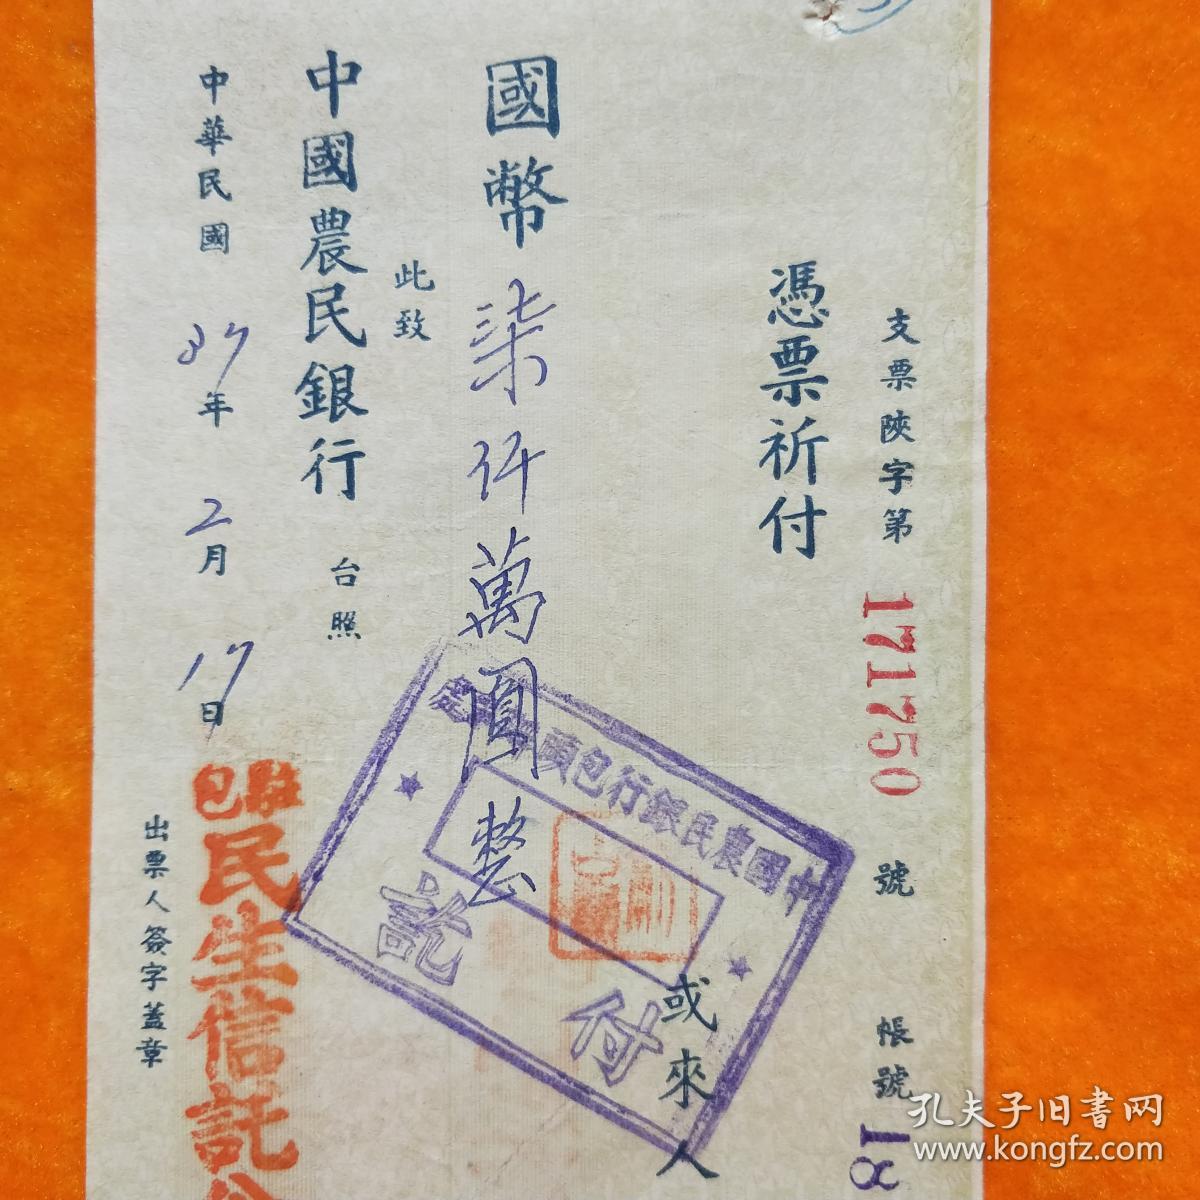 支票陝字第 171750 號 帳號 18
憑票祈付
或來人
國幣柒仟萬圓整
此致
中國農民銀行 台照
中華民國 37年 2月 17日
出票人簽字蓋章
駐包
民生信託公
中國農民銀行包頭
付訖
孔夫子旧書网
www.kongfz.com